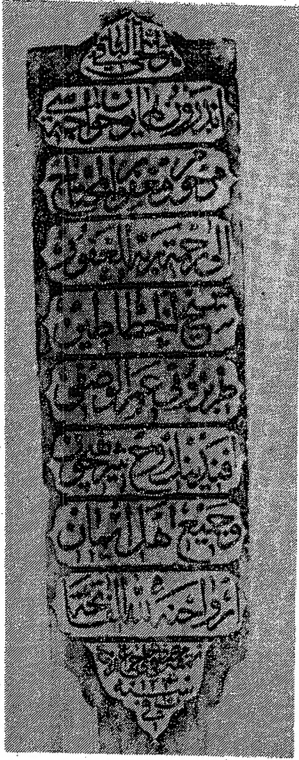 الباقي
اندرون همايون خواجه سى
مرحوم و مغفور المحتاج
الى رحمة ربه الغفور
شيخ الخطاطين
طربزونى عمر الوصفى
افندينك روح شريفيچون
و جميع اهل ايمان
ارواحنه لله الفاتحه
سنه